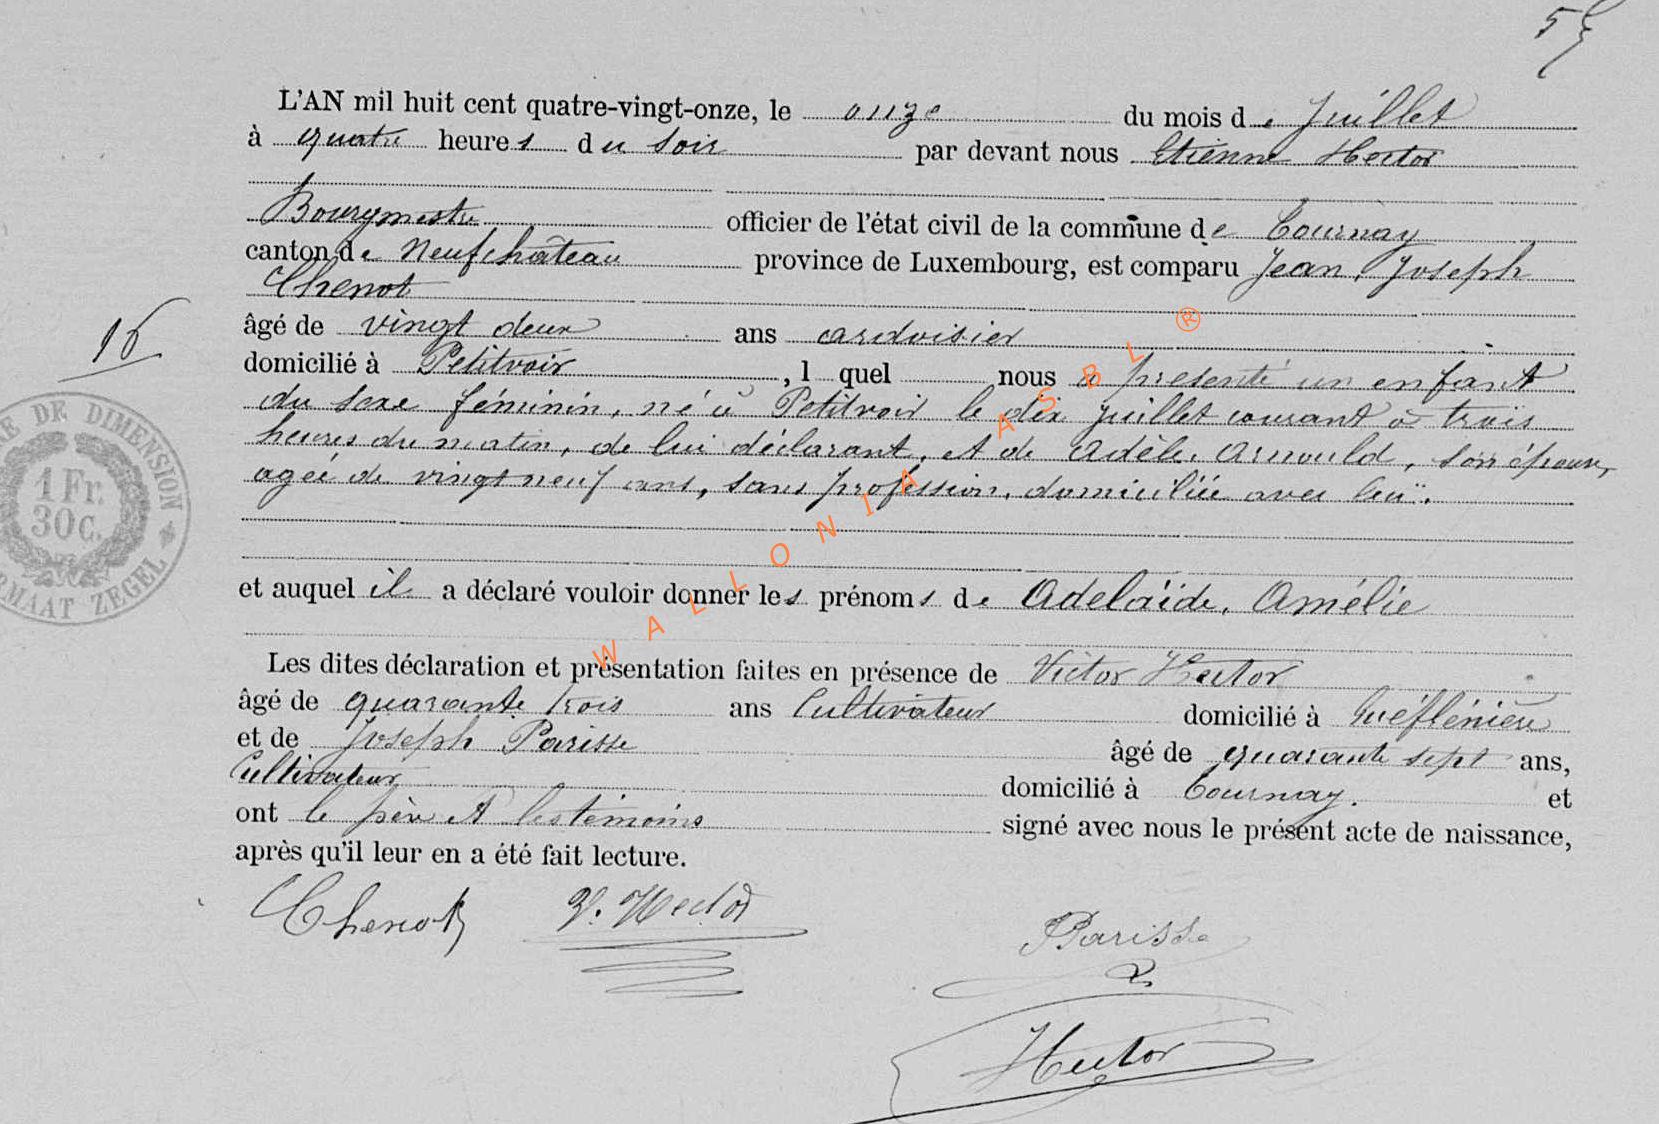 L'AN mil huit cent quatre-vingt-onze, le onze du mois de Juillet
à quatre heures du soir par devant nous Etienne Hector
Bourgmestre officier de l'état civil de la commune de Tournay
canton de Neufchâteau province de Luxembourg, est comparu Jean, Joseph
Chenot
âgé de vingt deux ans ardoisier
16
domicilié à Petitvoir, l quel nous a présenté un enfant
du sexe féminin, né à Petitvoir le dix juillet courant à trois
heures du matin, de lui déclarant, et de Adèle Arnould, son épouse,
agée de vingt neuf ans, sans profession, domiciliée avec lui.
et auquel il a déclaré vouloir donner les prénoms de Adelaïde, Amélie
Les dites déclaration et présentation faites en présence de Victor Hector
âgé de quarante trois ans Cultivateur domicilié à
et de Joseph Parisse âgé de quarante sept ans,
Cultivateur domicilié à Tournay. et
ont le père et les témoins signé avec nous le présent acte de naissance,
après qu'il leur en a été fait lecture.
Chenot V. Hector
Parisse
Hector
DE DIMENSION
1 Fr.
30 C.
ZEGEL
WALLONIA ASBL ®